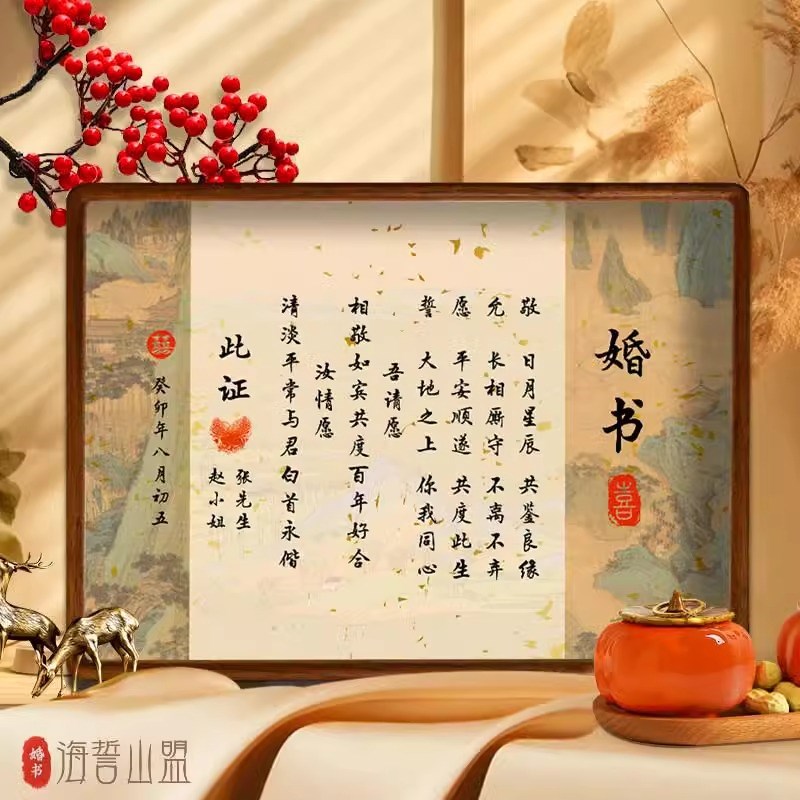 婚书
喜
敬 日月星辰 共鉴良缘
允 长相厮守 不离不弃
愿 平安顺遂 共度此生
誓 大地之上 你我同心
吾请愿
相敬如宾共度百年好合
汝情愿
清淡平常与君白首永偕
此证
张先生
赵小姐
囍
癸卯年八月初五
婚书
海誓山盟